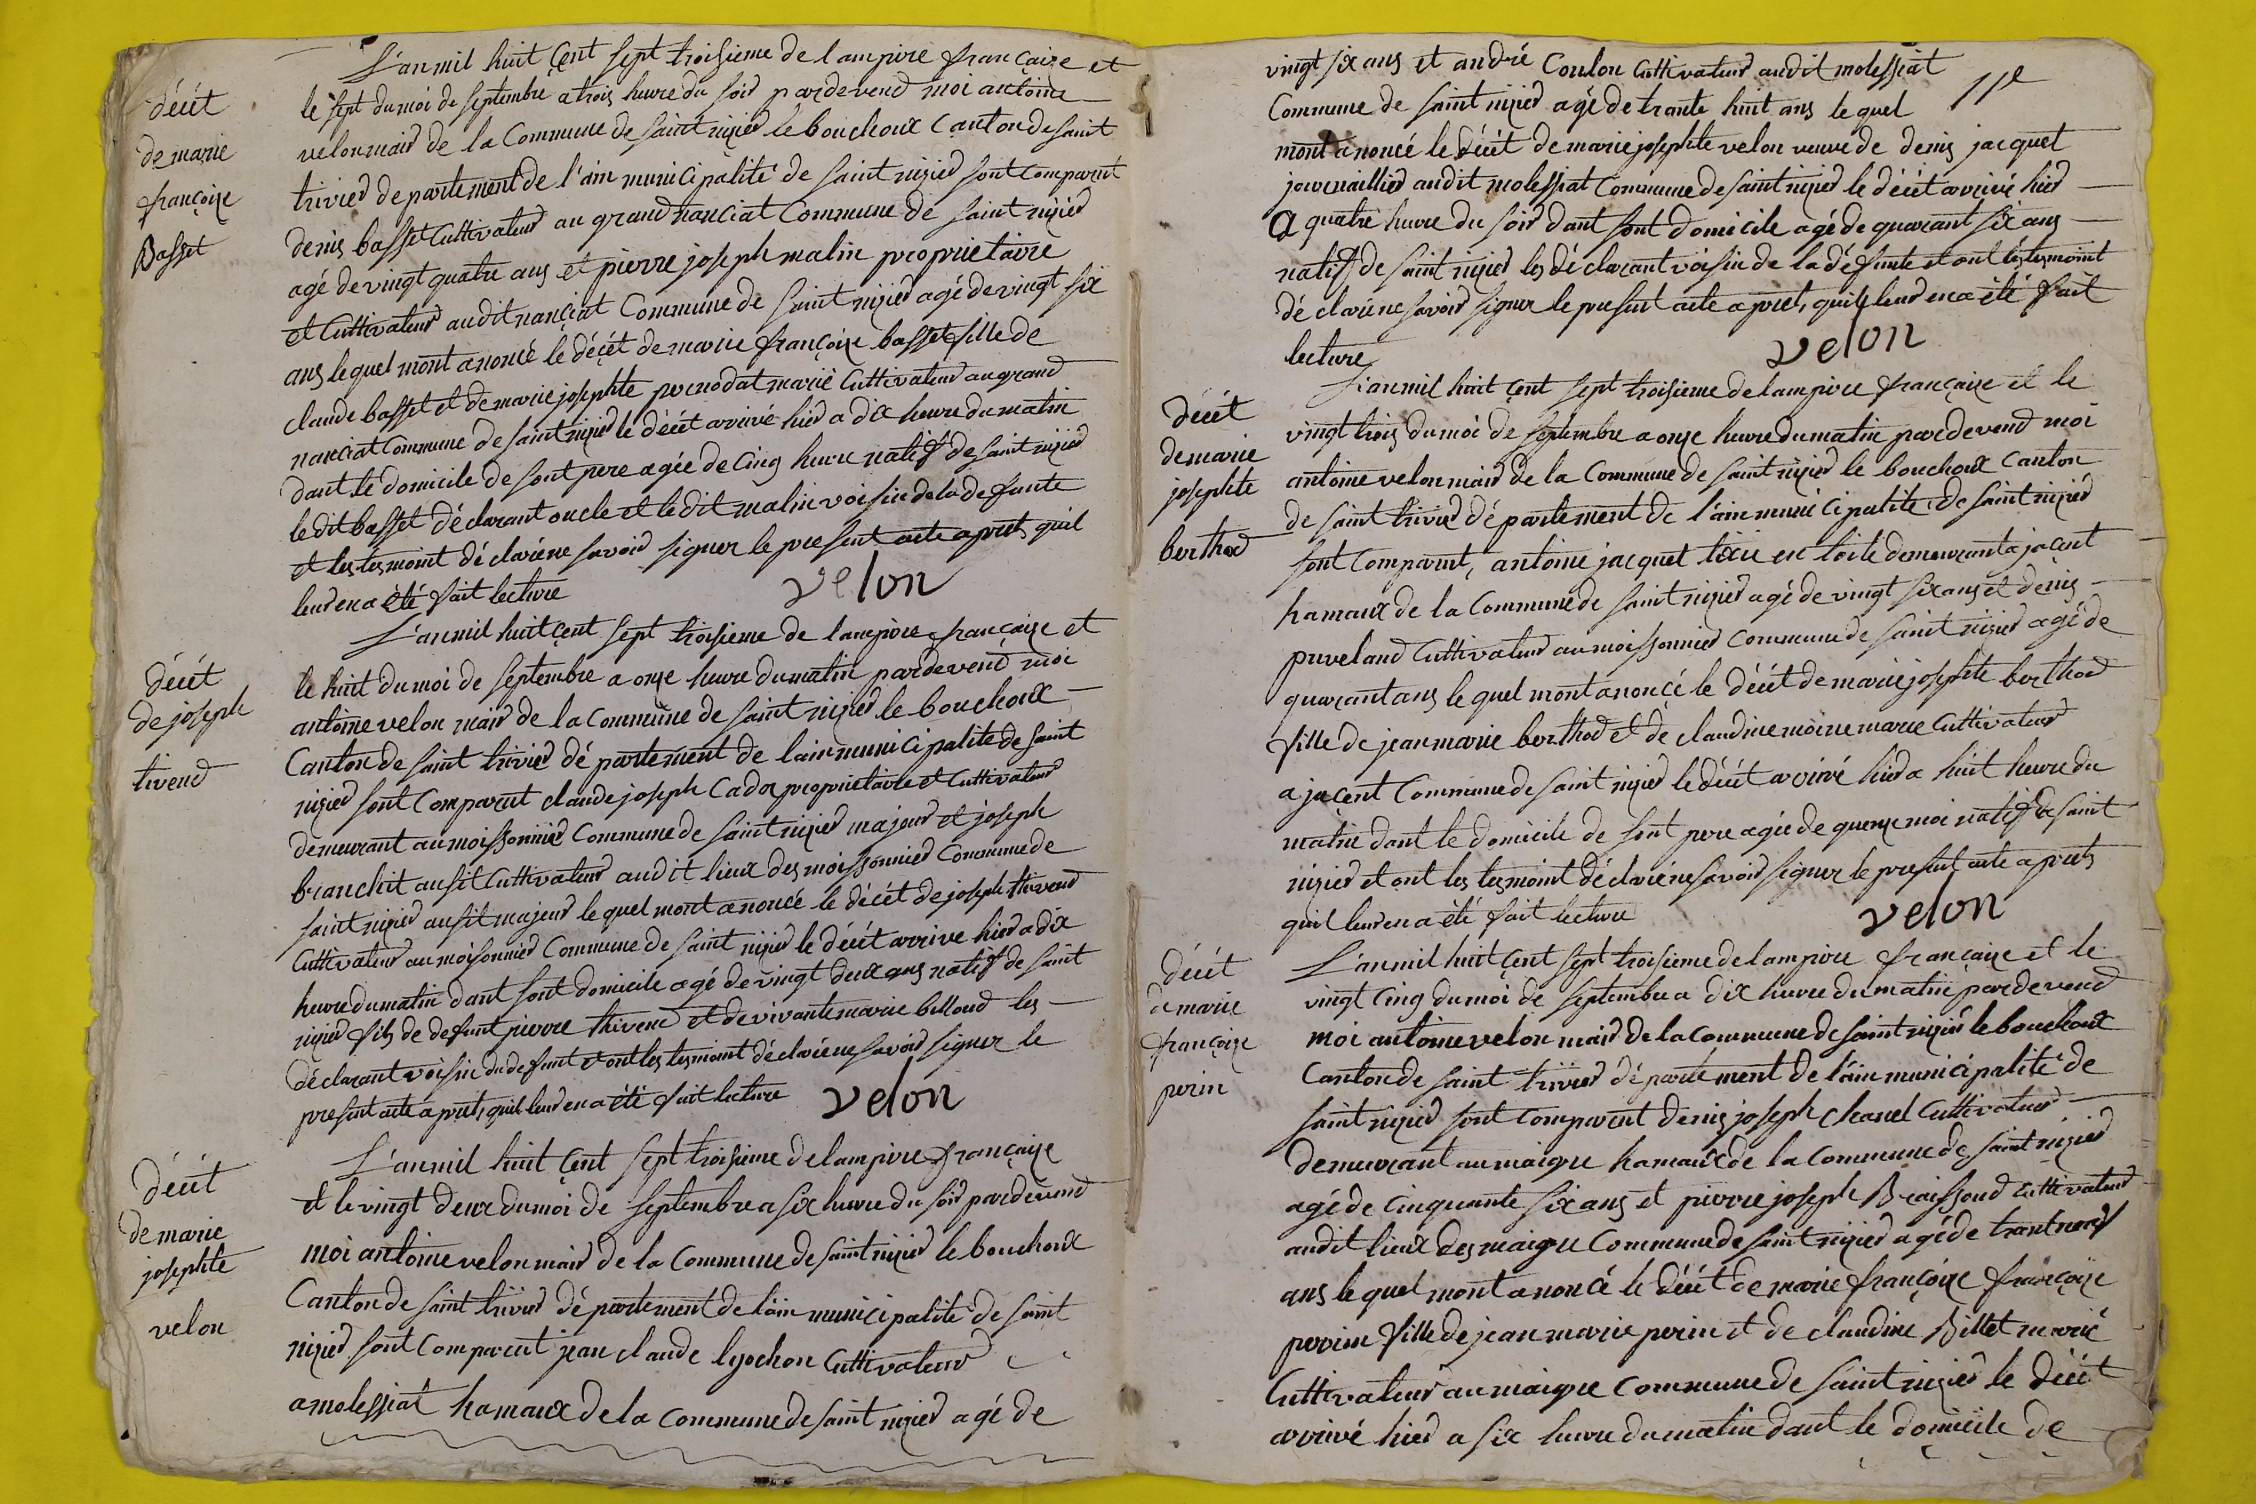 L'an mil huit çent sept troisieme de lampire françaize et
décét
de marie
françoize
Basset
le sept du moi de septembre a trois heure du soir pardevend moi antoine
velon mair de la Commune de saint nizier le bouchoux Canton de saint
trivier departement de l'ain municipalité de saint nizier sont comparut
denis basset Cultivateur au grand nanciat Commune de saint nizier
agé de vingt quatre ans et pierre joseph malin proprietaire
et Cultivateur audit nançiat Commune de saint nizier agé de vingt six
ans lequel mont anoncé le décét de marie françoize basset fille de
claude basset et de marie josephte pernodat marié Cultivateur au grand
nanciat Commune de saint nizier le décét arivé hier a dix heure du matin
dant le domicile de sont pere agée de cinq heure natif de saint nizier
ledit basset déclarant oncle et ledit malin voisin de la defunte
et les tesmoint déclaréne savoir signer le present acte apret quil
leur en a été fait lecture
velon
L'an mil huit çent sept troisieme de lampire françaize et
décét
de joseph
tivend
le huit du moi de septembre a onze heure du matin pardevend moi
antoine velon mair de la commune de saint nizier le bouchoux
Canton de saint trivier département de lain municipalité de saint
nizier sont Comparut claude joseph Cador proprietaire et Cultivateur
demeurant au moissonnier Commune de saint nizier majeur et joseph
branchit ausit Cultivateur audit lieux des moissonnier Commune de
saint nizier ausit majeur lequel mont anoncé le décét de joseph thivend
Cultivateur au moisonnier Commune de saint nizier le décét arrive hier a dix
heure du matin dant sont domicile agé de vingt deux ans natif de saint
nizier fils de defunt pierre thivend et de vivante marie billoud les
déclarant voisin du defunt et ont les tesmoint déclaréne savoir signer le
present acte apret, quil leur en a été fait lecture
velon
décét
de marie
josephte
velon
L'an mil huit çent sept troisieme de lampire françaize
et le vingt deux du moi de septembre a six heure du soir pardevend
moi antoine velon mair de la Commune de saint nizier le bouchoux
Canton de saint trivier département de lain municipalité de saint
nizier sont Comparut jean claude lyochon Cultivateur
a molessiat hamaux de la commune de saint nizier agé de
vingt six ans et andré Coulon Cultivateur audit molessiat
Commune de saint nizier agé de trante huit ans lequel
mont anoncé le décét de marie josephte velon veuve de denis jacquet
journaillier audit molessiat Commune de saint nizier le décét arrivé hier
a quatre heure du soir dant sont domicile agé de quarant six ans
natif de saint nizier les déclarant voisin de la défunte et ont les tesmoint
déclaréne savoir signer le present acte apret, quil leur en a été fait
lecture
velon
décét
de marie
josephte
berthod
L'an mil huit çent sept troisieme de lampire françaize et le
vingt trois du moi de septembre a onze heure du matin pardevend moi
antoine velon mair de la Commune de saint nizier le bouchoux Canton
de saint trivier département de l'ain municipalité de saint nizier
sont Comparut, antoine jacquet tixie en toile demeurant a jacent
hamaux de la Commune de saint nizier agé de vingt six ans et dénis
puveland Cultivateur au moissonnier Commune de saint nizier agé de
quarant ans lequel mont anonçé le décét de marie josephte berthod
fille de jean marie berthod et de claudine moine marie Cultivateur
a jaçent Commune de saint nizier le décét arrivé hier a huit heure du
matin dant le domicile de sont pere agée de quenze moi natif de saint
nizier et ont les tesmoint déclaréne savoir signer le present acte aprets
quil leur en a été fait lecture
velon
décét
de marie
françoize
perin
L'an mil huit çent sept troisieme de lampire françaize et le
vingt Cinq du moi de septembre a dix heure du matin pardevend
moi antoine velon mair de la Commune de saint nizier le bouchoux
Canton de saint trivier département de lain municipalité de
saint nizier sont Comparut denis joseph chanel Cultivateur
demeurant au maigre hamaux de la Commune de saint nizier
agé de Cinquante six ans et pierre joseph Braissoud Cultivateur
audit lieux des maigre Commune de saint nizier agé de trant neuf
ans lequel mont anoncé le décét de marie françoize françoize
perrin fille de jean marie perin et de claudine Billet marié
Cultivateur au maigre Commune de saint nizier le décét
arrivé hier a six heure du matin dant le domicile de